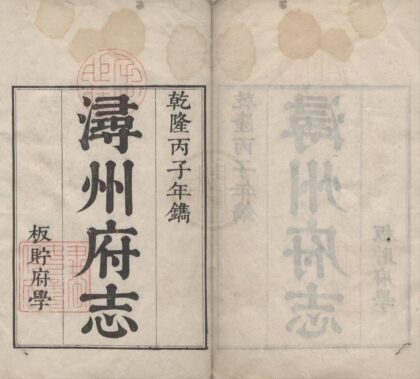 乾隆丙子年鐫
潯州府志
板貯府學